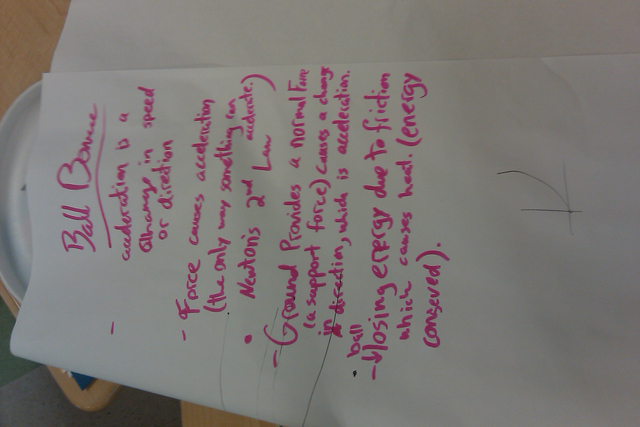 Ball Bounce
- acceleration is a
change in speed
or direction
- Force causes acceleration
(the only way something can
accelerate.)
• Newtons 2nd Law
- Ground Provides a normal Force
(a support force) causes a change
in direction, which is acceleration.
• ball
- losing energy due to friction
which causes heat. (energy
conserved).